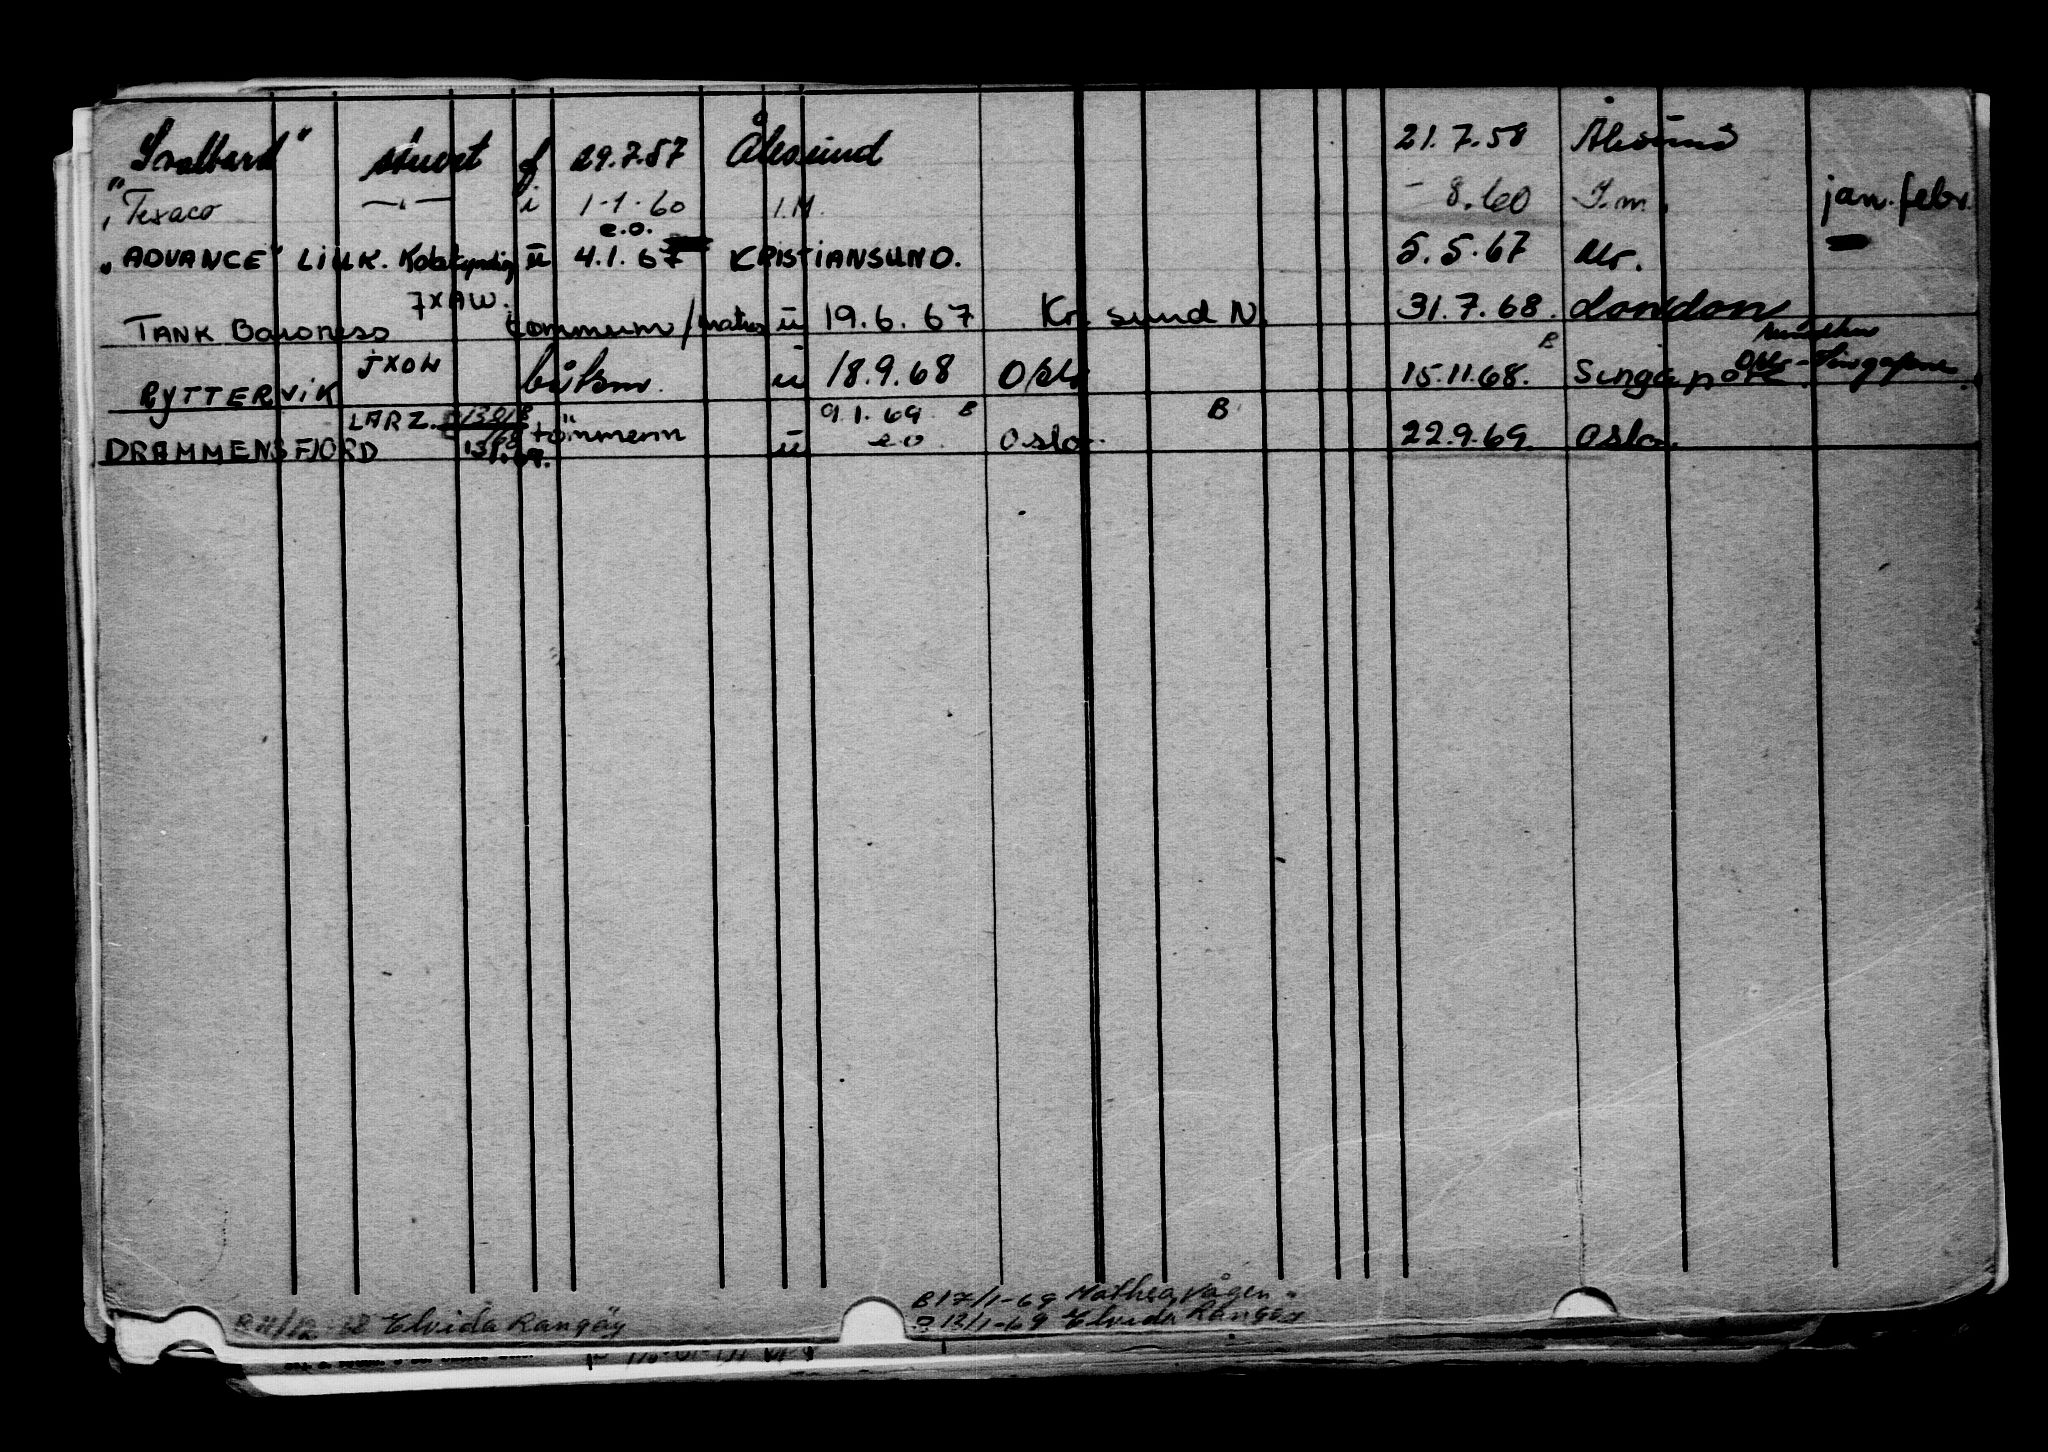 "Svalbard" stuert f 29.7.57 Ålesund 21.7.58 Ålesund
"Texaco —"— i 1-1-60 I.M. - 8.60 I.m. jan.-febr.
e.o.
"ADVANCE" LIUK. ü 4.1.67 KRISTIANSUND. 5.5.67 Mr.
7XAW.
TANK Baroness tømmerm/matros ü 19.6.67 Kr. sund N. 31.7.68. London
JXOW B
RYTTERVIK båtsm. ü 18.9.68 Oslo 15.11.68. Singapore. Oslo - Singapore.
LARZ. 9.1.69 B B
DRAMMENSFJORD tømmerm ü e.o. Oslo. 22.9.69. Oslo.
B 17/1-69 Hathes, Vågen.
B 11/12 68 Elvida Rangøy
B 13/1-69 Elvida Rangøy